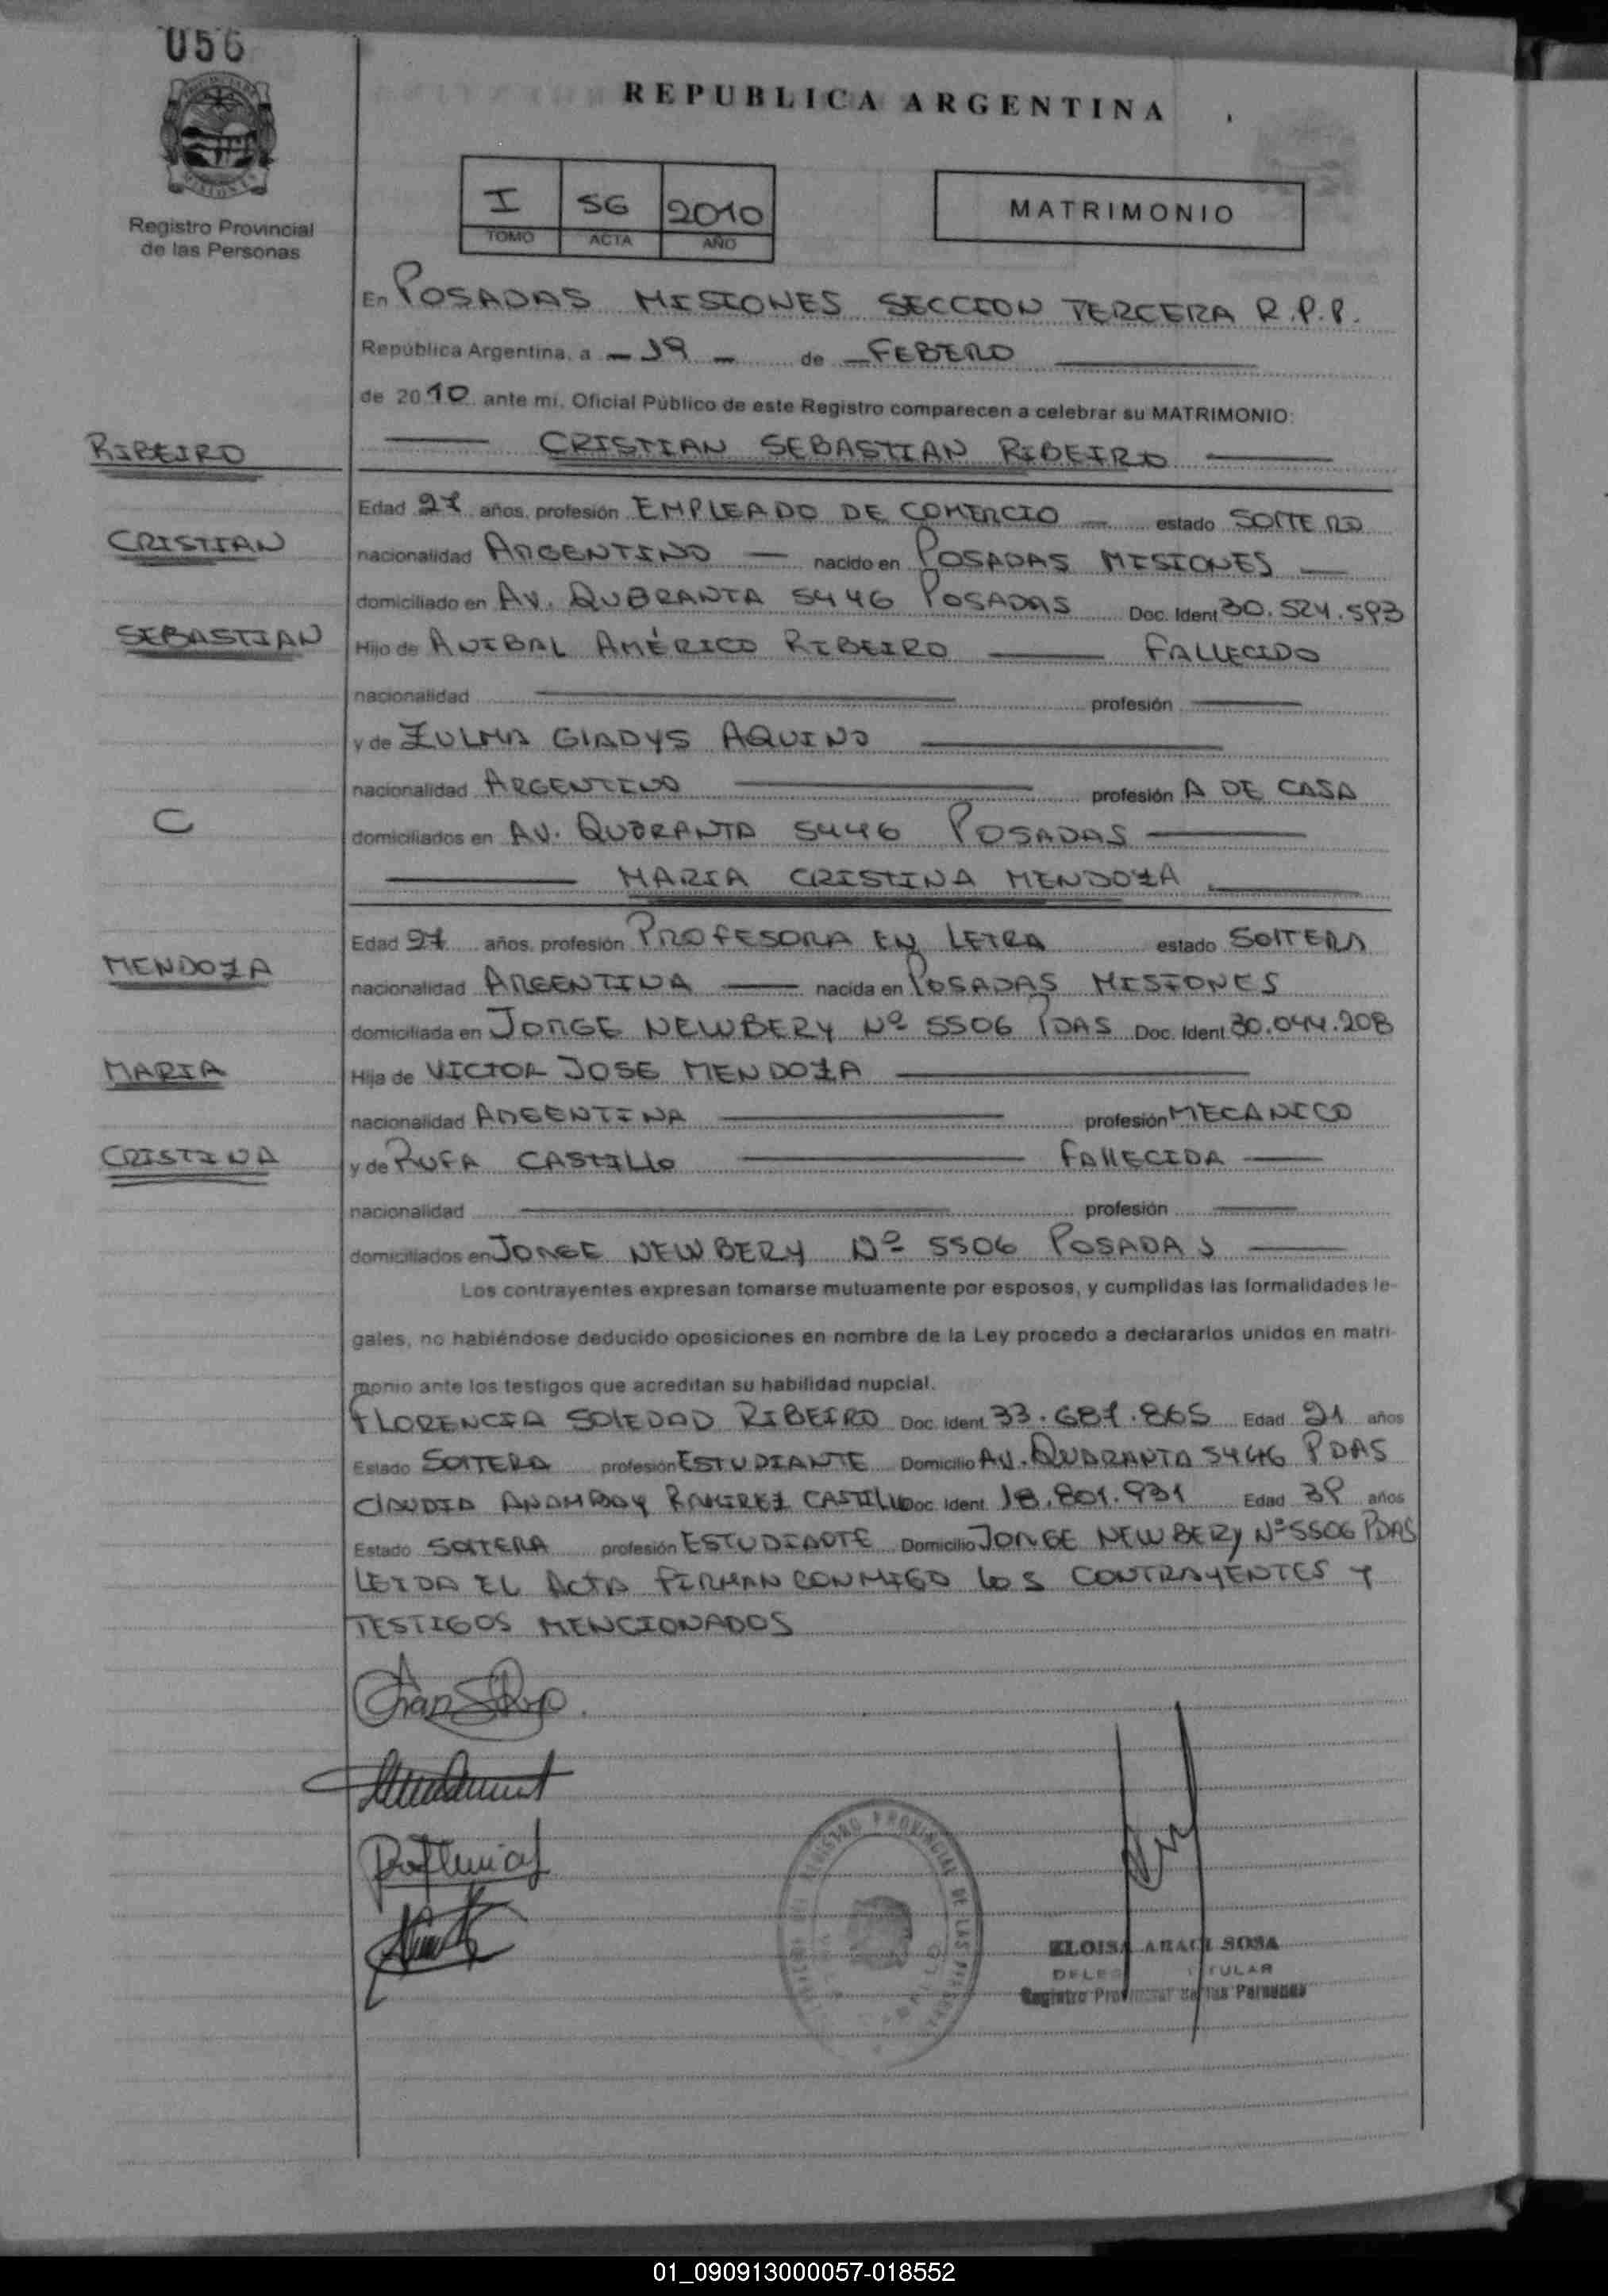 056
REPUBLICA ARGENTINA
MISIONES
Registro Provincial
de las Personas
I 56 2010
TOMO ACTA AÑO
MATRIMONIO
En POSADAS MISIONES SECCION TERCERA R.P.P.
República Argentina, a 19 de FEBERO
de 2010 ante mi, Oficial Público de este Registro comparecen a celebrar su MATRIMONIO:
RIBEIRO
CRISTIAN SEBASTIAN RIBEIRO
Edad 27 años, profesión EMPLEADO DE COMERCIO estado SOLTERO
CRISTIAN
nacionalidad ARGENTINO nacido en POSADAS MISIONES
domiciliado en AV. QUBRANTA 5446 POSADAS Doc. Ident 30.524.593
SEBASTIAN
Hijo de ANIBAL AMÉRICO RIBEIRO FALLECIDO
nacionalidad profesión
y de ZULMA GLADYS AQUINO
nacionalidad ARGENTINO profesión A DE CASA
C
domiciliados en AV. QUBRANTA 5446 POSADAS
MARIA CRISTINA MENDOZA
Edad 27 años, profesión PROFESORA EN LETRA estado SOLTERA
MENDOZA
nacionalidad ARGENTINA nacida en POSADAS MISIONES
domiciliada en JORGE NEWBERY Nº 5506 PDAS Doc. Ident. 30.044.208
MARIA
Hija de VICTOR JOSE MENDOZA
nacionalidad ARGENTINA profesión MECANICO
CRISTINA
y de RUFA CASTILLO FALLECIDA
nacionalidad profesión
domiciliados en JORGE NEWBERY Nº 5506 POSADAS
Los contrayentes expresan tomarse mutuamente por esposos, y cumplidas las formalidades le-
gales, no habiéndose deducido oposiciones en nombre de la Ley procedo a declararlos unidos en matri-
monio ante los testigos que acreditan su habilidad nupcial.
FLORENCIA SOLEDAD RIBEIRO Doc. Ident. 33.687.865 Edad 21 años
Estado SOLTERA profesión ESTUDIANTE Domicilio AV. QUARANTA 5446 PDAS
CLAUDIA RAMIREZ CASTILLO Doc. Ident. 18.801.931 Edad 39 años
Estado SOLTERA profesión ESTUDIANTE Domicilio JORGE NEWBERY Nº 5506 PDAS
LEIDA EL ACTA FIRMAN CONMIGO LOS CONTRAYENTES Y
TESTIGOS MENCIONADOS
REGISTRO PROVINCIAL DE LAS PERSONAS
ELOISA ARACI SOSA
TITULAR
Registro Provincial de las Personas
01_090913000057-018552